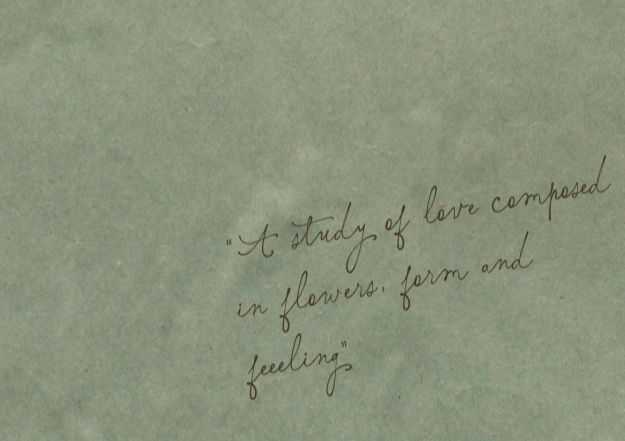 "A study of love composed
in flowers, form and
feeeling"